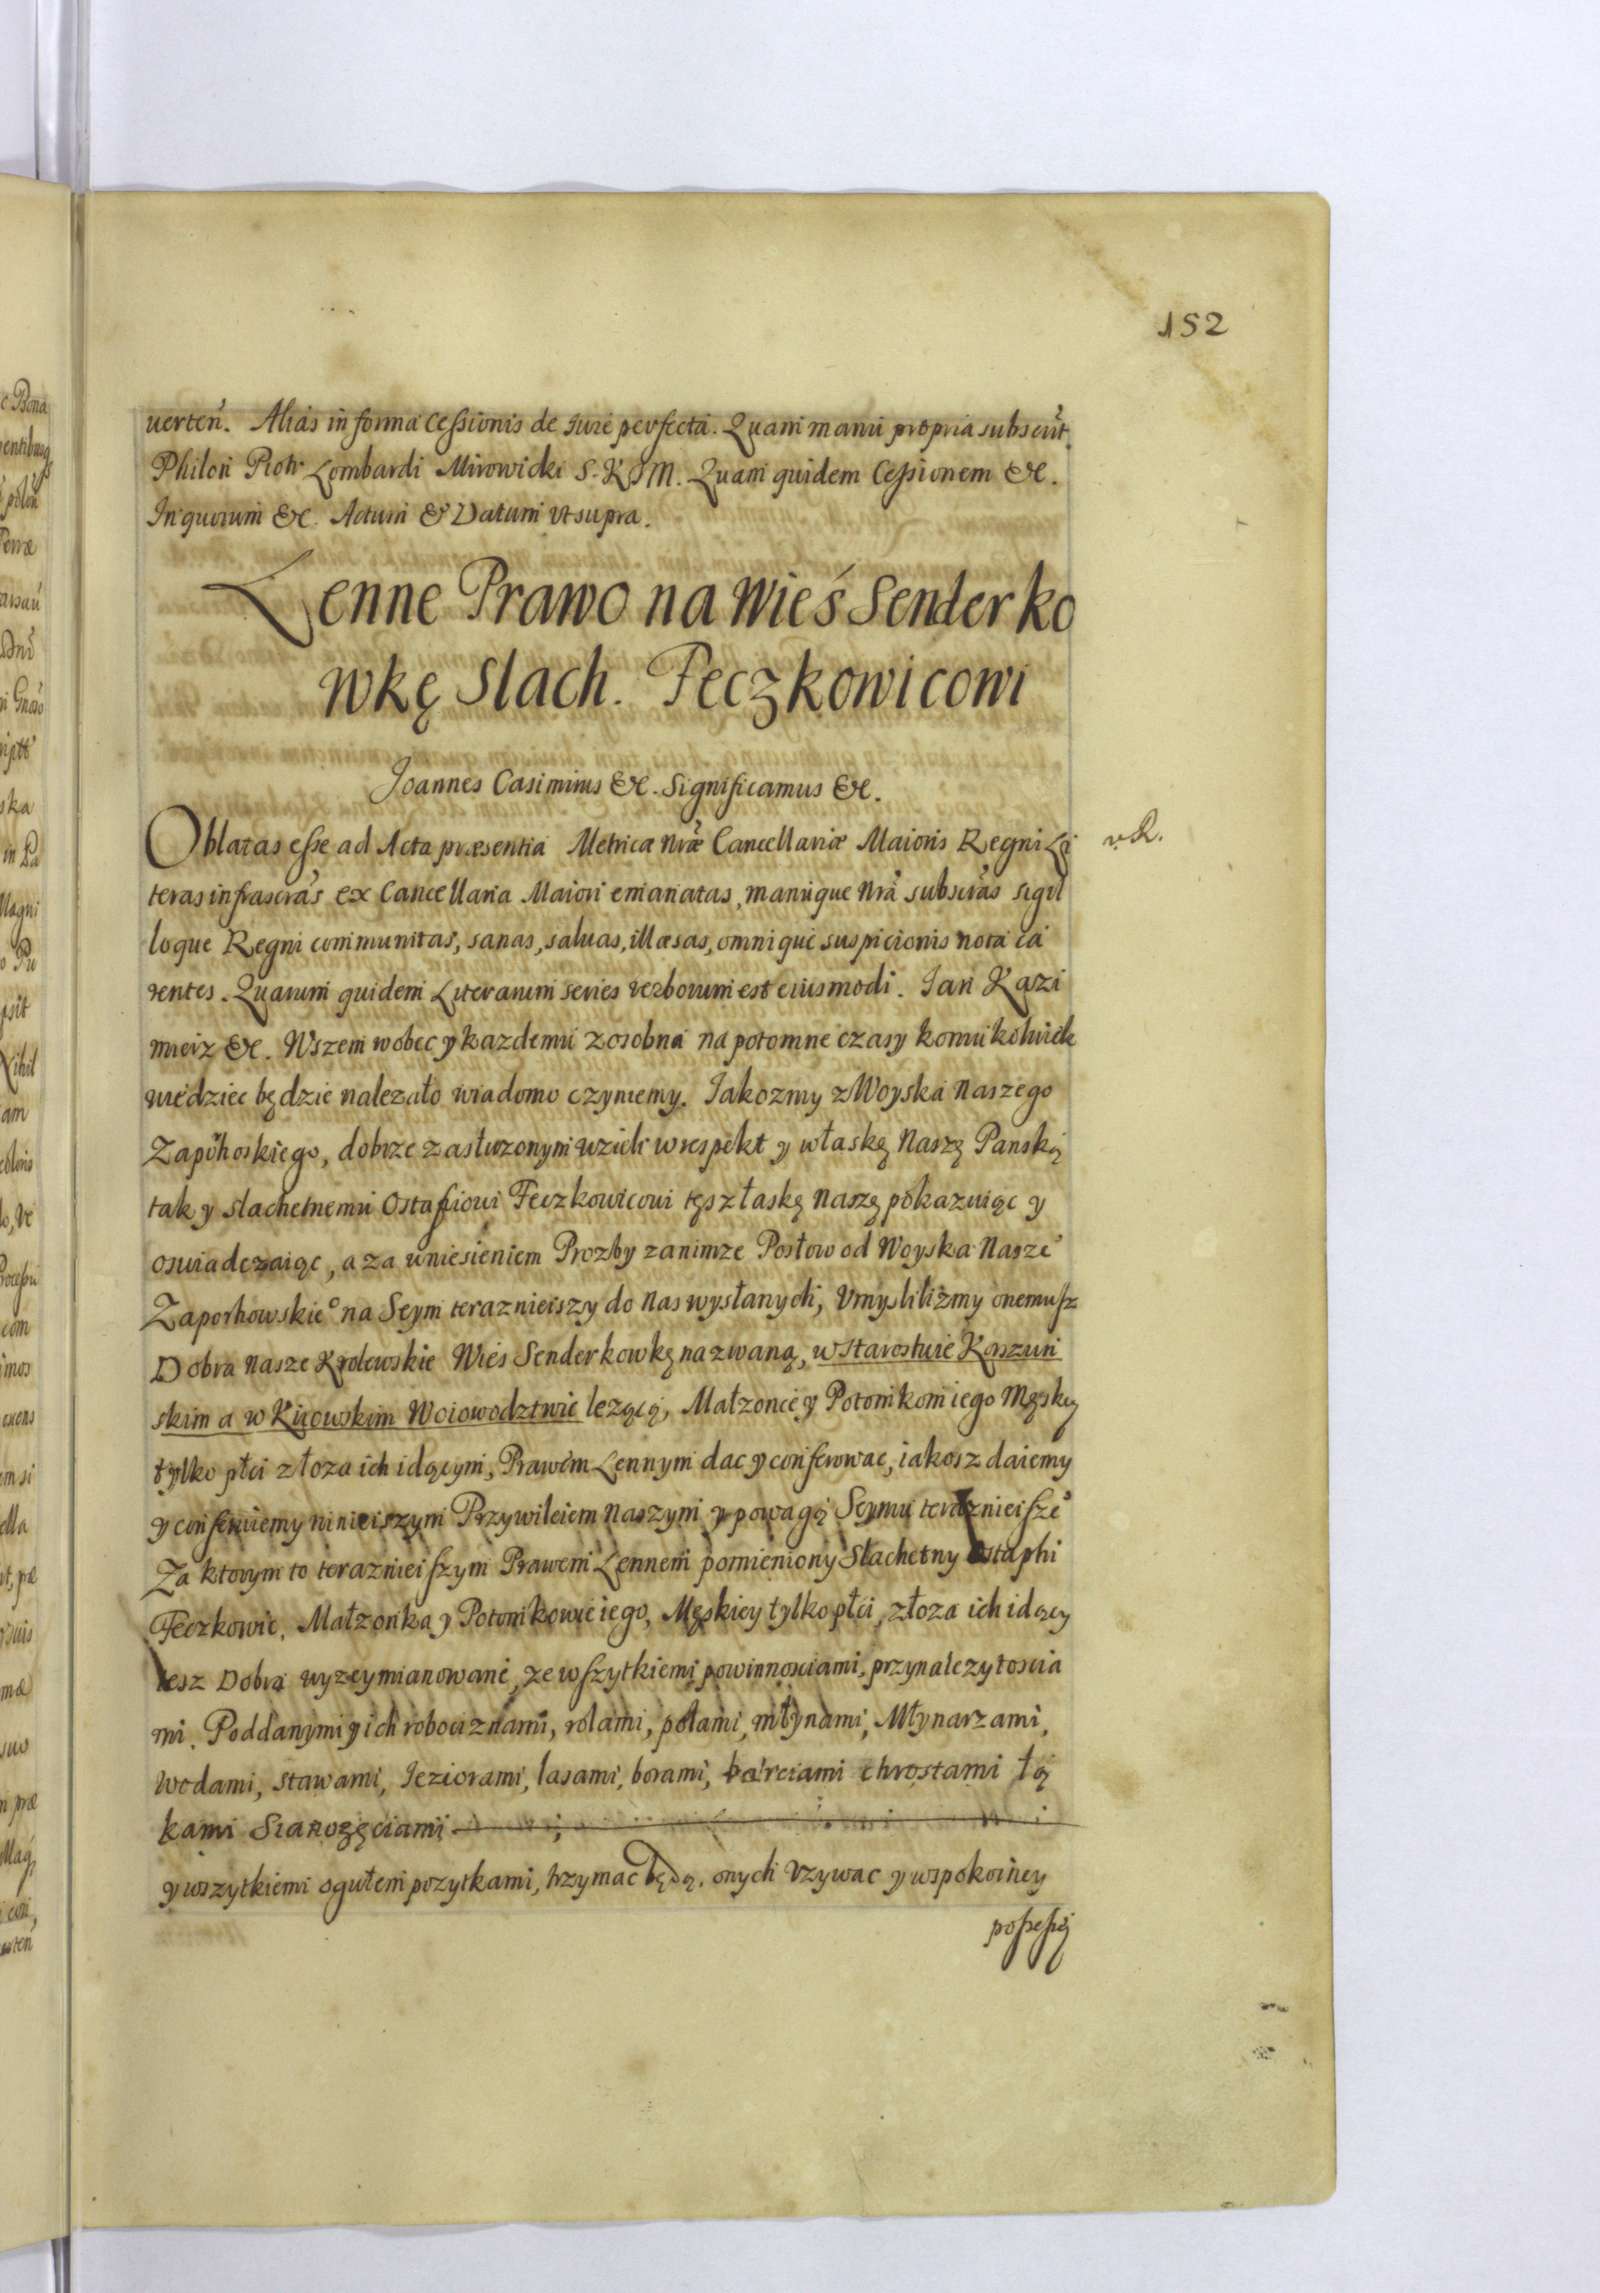 152
uerteń. Aliàs in forma Cessionis de Iure perfecta. Quam manu propria subscrit.
Philon Piotr Lombardi Mirowicki S. K J M. Quam quidem Cessionem &c.
In quorum &c. Actum & Datum vt supra.
Lenne Prawo na Wieś Senderko
wkę Slach. Feczkowicowi
Joannes Casimirus &c. Significamus &c.
Oblatas esse ad Acta præsentia Metricæ Nræ Cancellariæ Maioris Regni Li
teras infrascras ex Cancellaria Maiori emanatas, manuque Nrã subscras sigil
loque Regni communitas, sanas, saluas, illæsas, omnique suspicionis nota ca
rentes. Quarum quidem Literarum series verborum est eiusmodi. Jan Kazi
mierz &c. Wszem wobec y kazdemu zosobna na potomne czasy komu kolwiek
wiedziec będzie nalezało wiadomo czyniemy. Jakozmy z Woyska Naszego
Zapohoskiego, dobrze zasłuzonym wzieli w respekt y właskę Naszę Panską
tak y slachetnemu Ostafiowi Feczkowicowi tęsz łaskę Naszę pokazuiąc y
oswiadczaiąc, a za wniesieniem Prozby zanimze Posłow od Woyska Nasze
Zaporhowskie° na Seym terazniejszy do Nas wysłanych, Vmyslilizmy onemusz
Dobra Nasze Krolewskie Wies Senderkowkę nazwaną, w Starostwie Korszun
skim a w Kiiowskim Woiowodztwie lezącą, Małzonce y Potomkom iego Męskey
tylko płci z łoza ich idącym, Prawem Lennym dac y conferowac, iakosz daiemy
y conferuiemy ninieiszym Przywileiem Naszym y powagą Seymu terazniejsze
Za ktorym to teraznieiszym Prawem Lennem pomieniony Slachetny Ostaphi
Feczkowic, Małzonka y Potomkowie iego, Męskiey tylko płci, z łoza ich idący
tesz Dobra wyzeymianowane, ze wszytkiemi powinnosciami, przynalezytoscia
mi, Poddanymi y ich robociznami, rolami, polami, młynami, Młynarzami,
wodami, stawami, Jeziorami, lasami, borami, barciami chrostami łą
kami Sianozęciami
y wszytkiemi ogułem pozytkami, trzymac będą, onych Vzywac y w spokoiney
possessiej